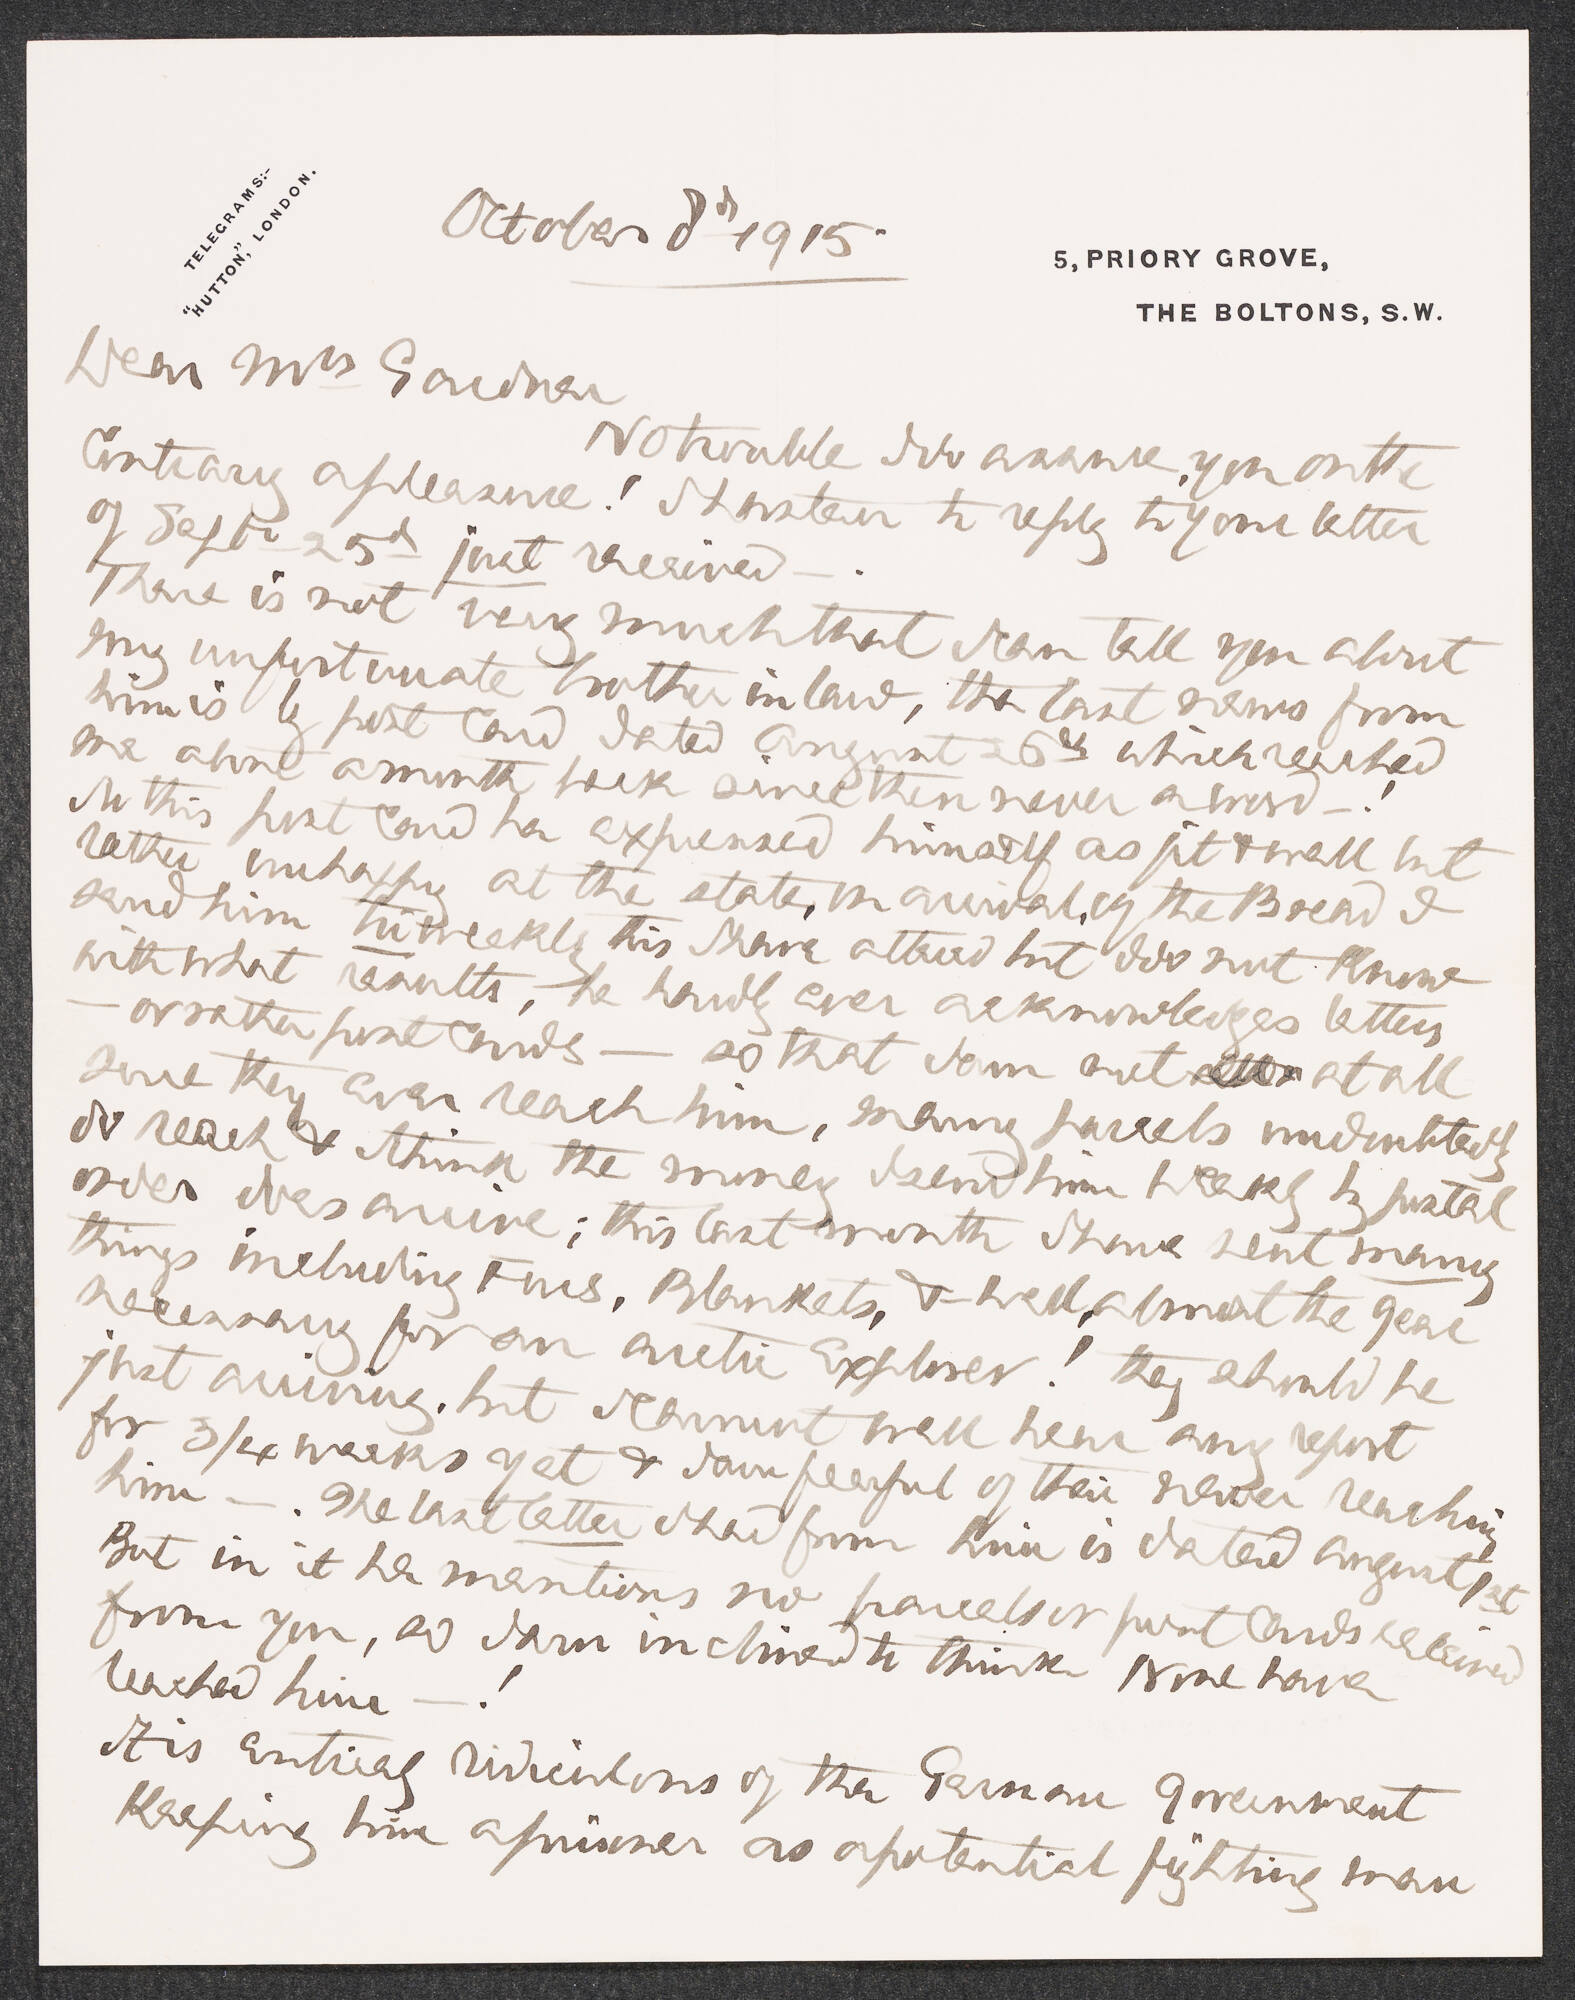 TELEGRAMS:-
"HUTTON," LONDON.
October 8th 1915.
5, PRIORY GROVE,
THE BOLTONS, S.W.
Dear Mrs Gardner
No trouble I do assure you on the
Contrary a pleasure! I hasten to reply to your letter
of Septr 25th just received —.
There is not very much that I can tell you about
my unfortunate brother in law, the last news from
him is by post Card dated August 26th which reached
me about a month back since then never a word —!
In this post Card he expressed himself as fit & well but
rather unhappy at the state, on arrival, of the Bread I
send him tri weekly this I have altered but I do not know
with what results, he hardly ever acknowledges letters
— or rather post Cards — so that I am not at all
sure they ever reach him, many parcels undoubtedly
do reach & I think the money I send him weekly by postal
order does arrive; this last month I have sent many
things including Furs, Blankets, & well, almost the gear
necessary for an arctic Explorer! they should be
just arriving, but I cannot well hear any report
for 3/4 weeks yet & I am fearful of their never reaching
him —. The last letter I had from him is dated August 1st
But in it he mentions no parcels or post Cards received
from you, so I am inclined to think None have
reached him —!
It is entirely ridiculous of the German Government
Keeping him a prisoner as a potential fighting man